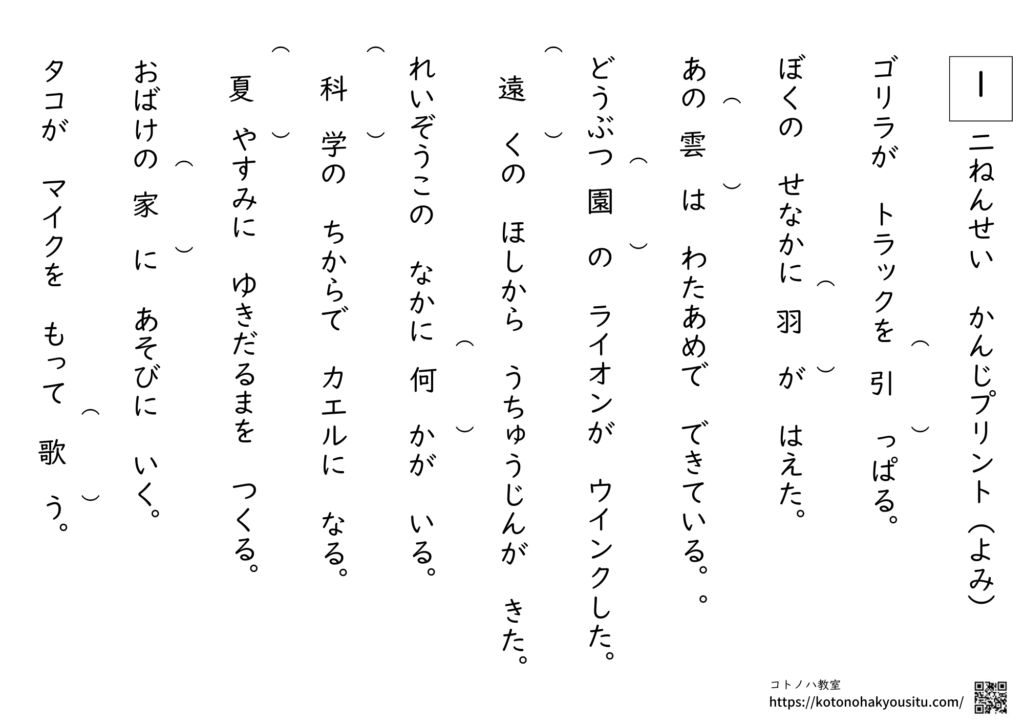 1 二ねんせい かんじプリント（よみ）
ゴリラが トラックを 引（ ）っぱる。
ぼくの せなかに 羽（ ）が はえた。
あの 雲（ ）は わたあめで できている。。
どうぶつ園（ ）の ライオンが ウインクした。
遠（ ）くの ほしから うちゅうじんが きた。
れいぞうこの なかに 何（ ）かが いる。
科（ ）学の ちからで カエルに なる。
夏（ ）やすみに ゆきだるまを つくる。
おばけの 家（ ）に あそびに いく。
タコが マイクを もって 歌（ ）う。
コトノハ教室
https://kotonohakyousitu.com/